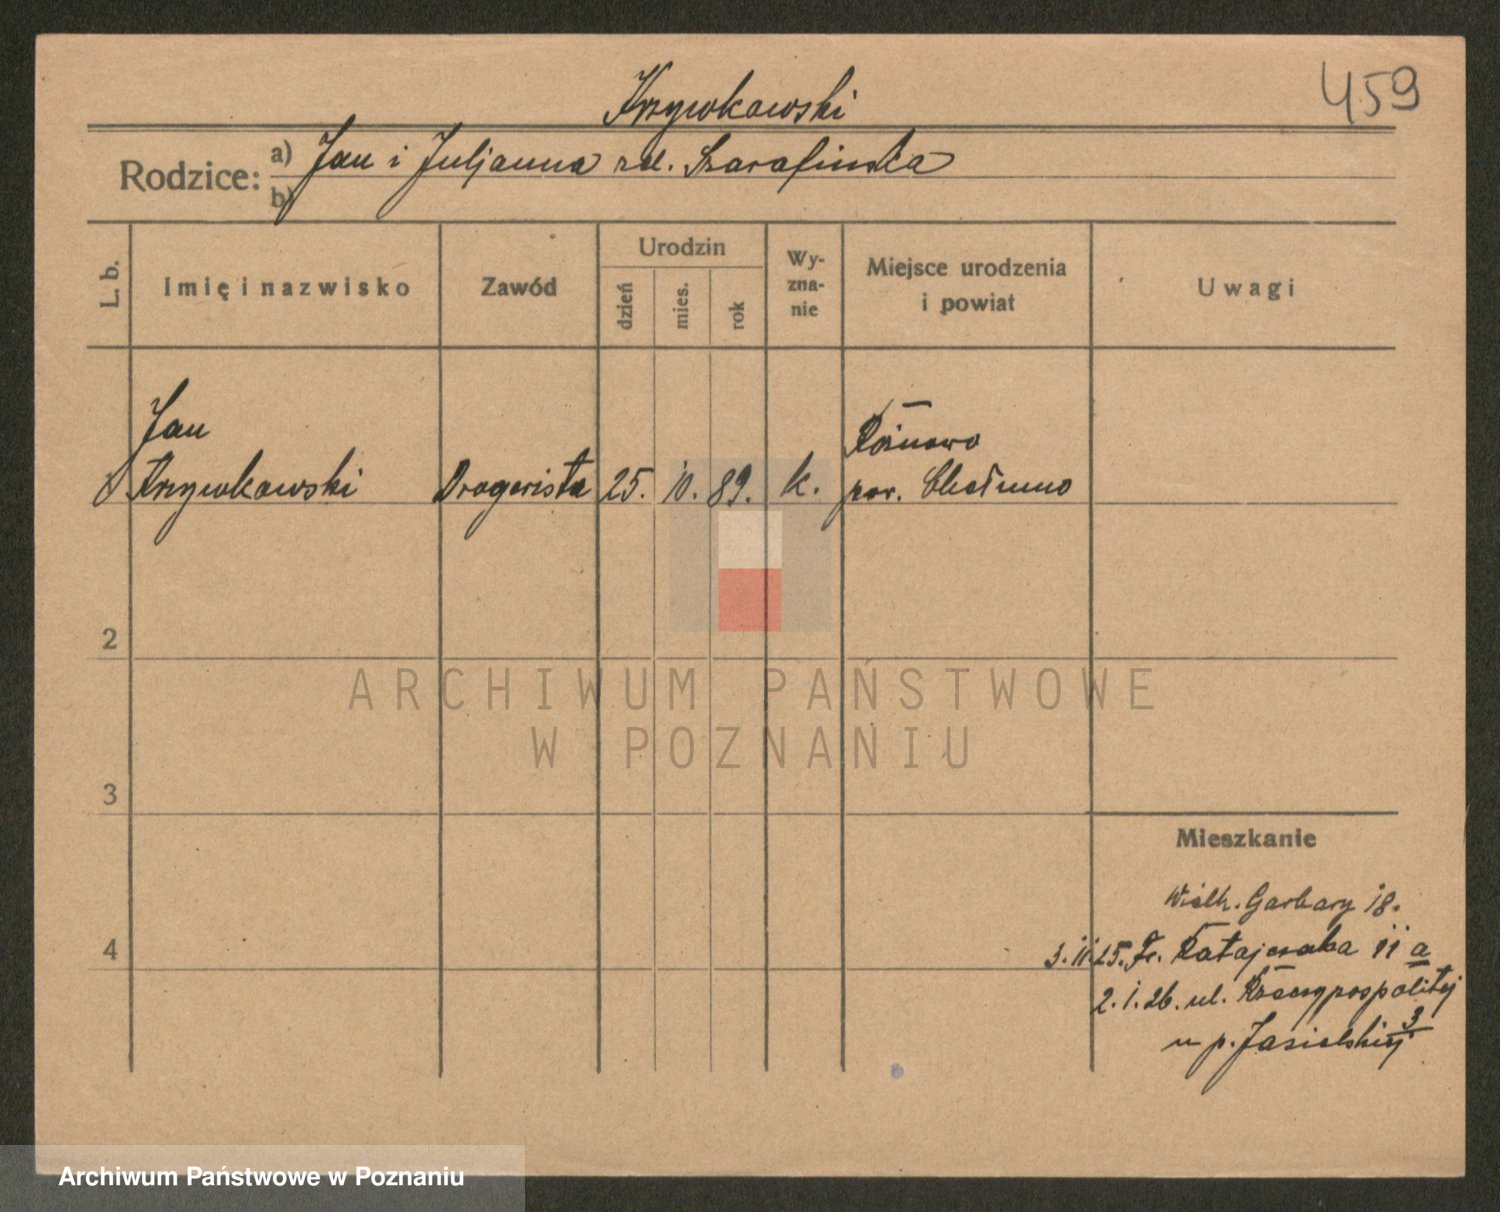 459
Krzywkowski
Rodzice: a) Jan i Juljanna zd. Szarafinska
b)
L. b.
Imię i nazwisko
Zawód
Urodzin
dzień
mies.
rok
Wy-
zna-
nie
Miejsce urodzenia
i powiat
Uwagi
Jan
Krzywkowski
Drogerista
25. 10. 89.
k.
Różnowo
pow. Chełmno
2
3
4
ARCHIWUM PAŃSTWOWE
W POZNANIU
Mieszkanie
Wielk. Garbary 18.
3.11.25. Fr. Ratajczaka 11a
2.1.26. ul. Rzeczypospolitej
3
u p. Jasielskiej
Archiwum Państwowe w Poznaniu